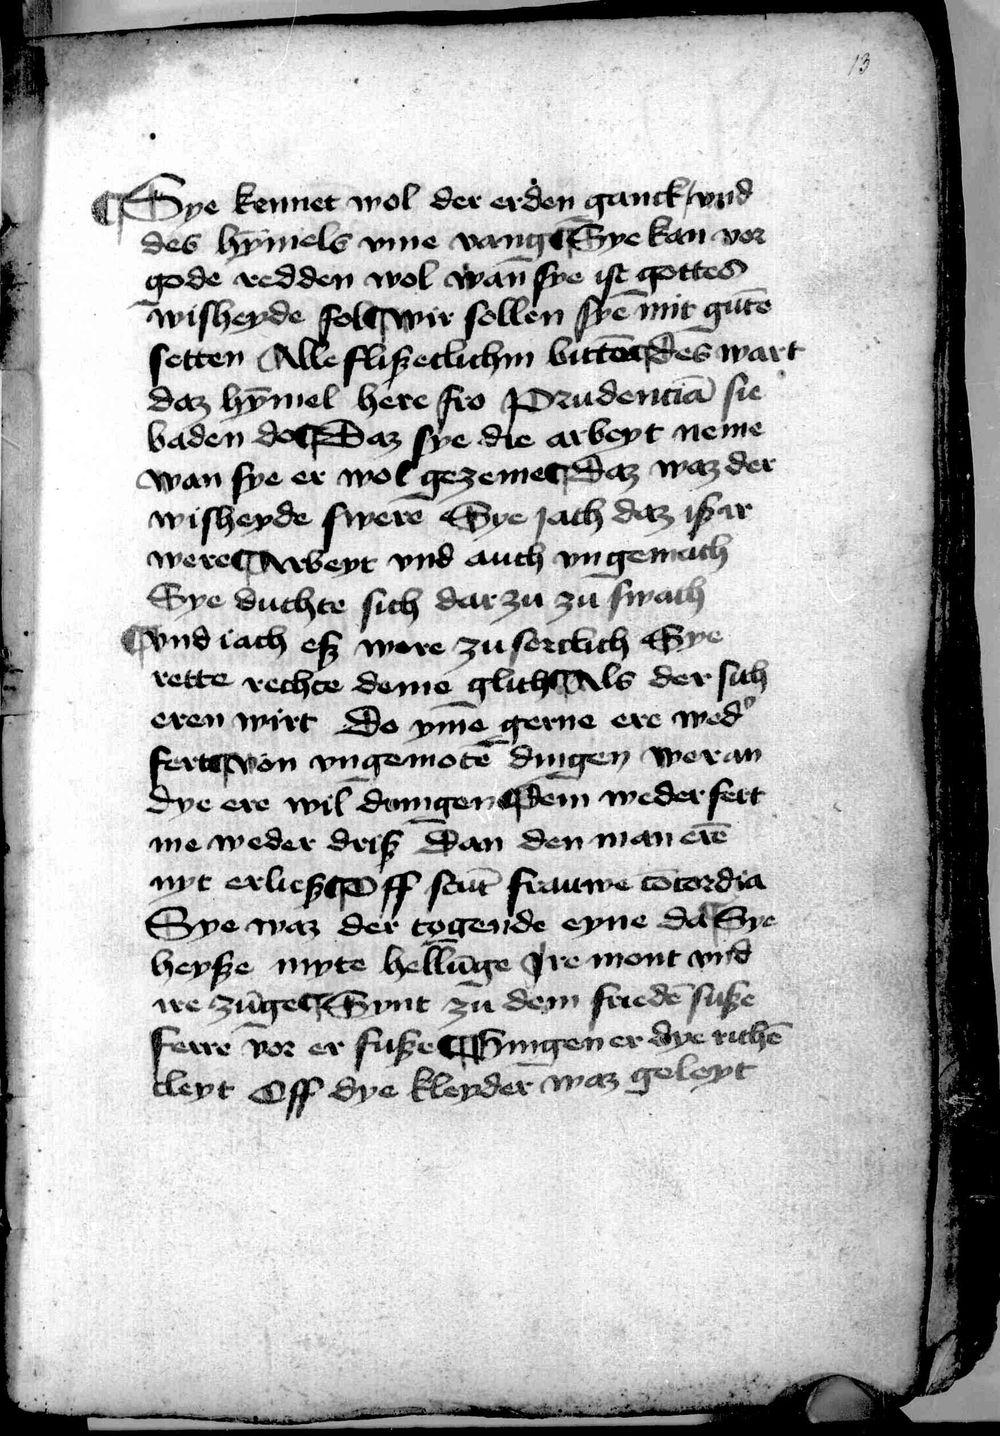 13
¶ Sye kennet wol der erden ganck / vnd
des hȳmels vme vang ¶ Sye kan vor
gode redden wol wan sye ist gottes
wisheyde fol ¶ wir sollen syē mit gūtē
setten Alle fliszeclichin bittē ¶ des wart
daz hȳmel here fro Prudenciā sie
baden do ¶ Daz sye die arbeyt neme
wan sye er wol gezeme ¶ Daz waz der
wisheyde swerē Sye jach daz isz ir
were ¶ Arbeyt vnd auch vngemach
Sye duchte sich dar zu zu swach
¶ vnd iach esz were zu sorclich Sye
rette rechte deme glich ¶ Als der sich
eren wirt Do yme gerne ere wed̕
fert ¶ Von vngemotē dingen wer an
dye ere wil dringen ¶ Dem weder fert
me weder drisz Dan den man erē
nyt erliesz ¶ Off stūt frauwe cōcordia
Sye waz der togende eyne da ¶ Sye
heysze myte hellūge Jre mont vnd
ire zūge ¶ Synt zu dem friedē susze
Ferre vor er fusze ¶ Hingen er dye richē
cleyt Off dye kleyder waz geleyt